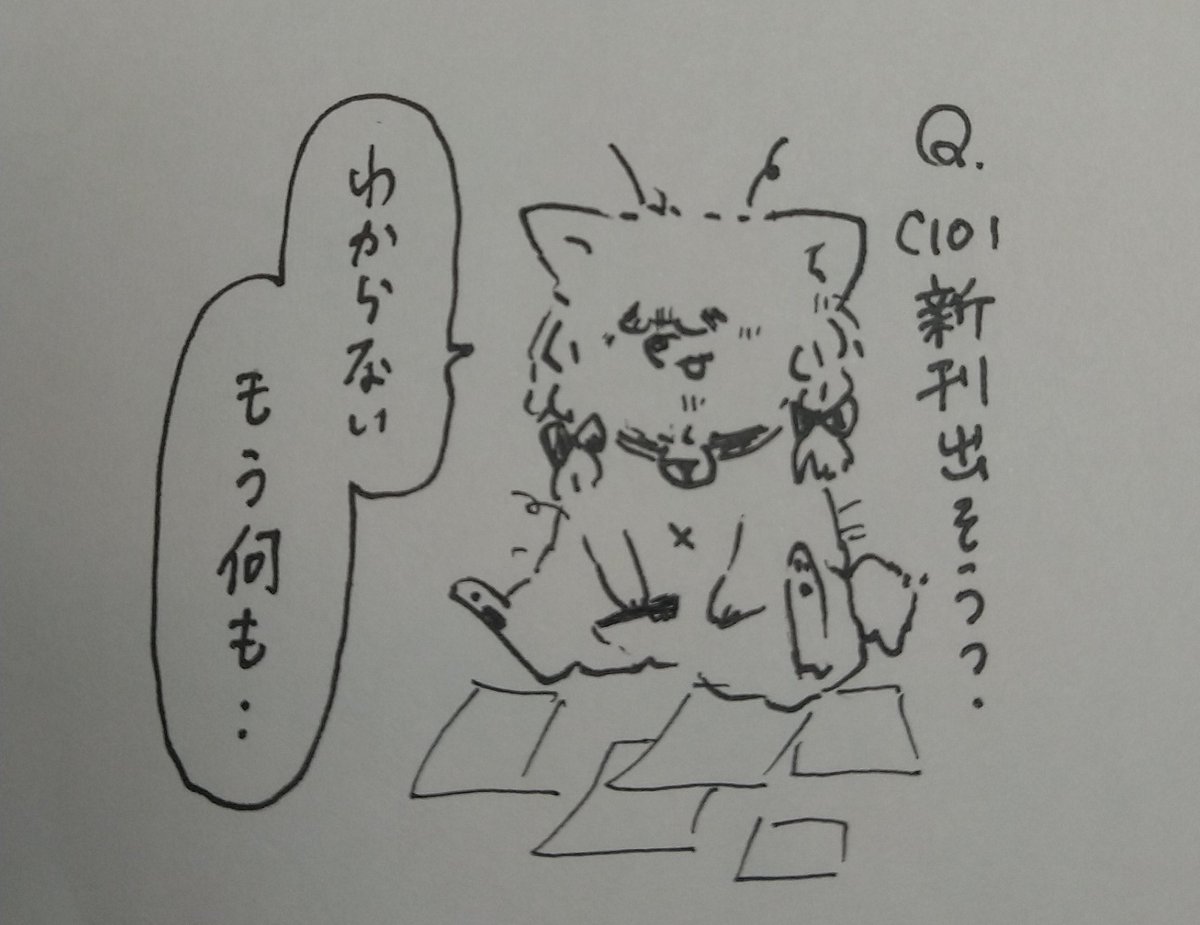 Q.
C101
新刊出そうっ.
わからない
もう何も..